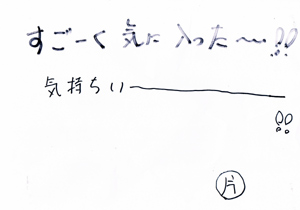 すごーく気に入った〜!!
気持ちいー!!
片